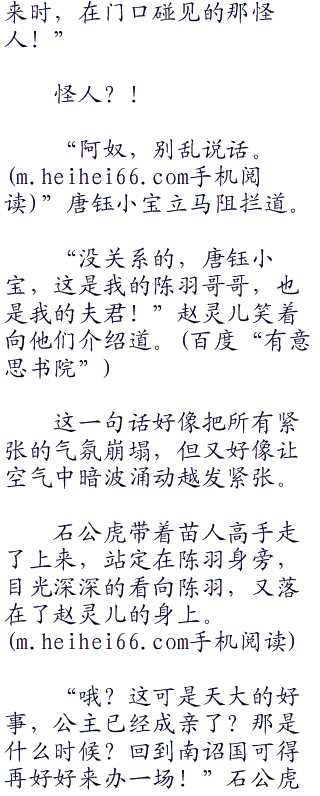 来时，在门口碰见的那怪
人！”
怪人？！
“阿奴，别乱说话。
(m.heihei66.com手机阅
读)”唐钰小宝立马阻拦道。
“没关系的，唐钰小
宝，这是我的陈羽哥哥，也
是我的夫君！”赵灵儿笑着
向他们介绍道。(百度“有意
思书院”)
这一句话好像把所有紧
张的气氛崩塌，但又好像让
空气中暗波涌动越发紧张。
石公虎带着苗人高手走
了上来，站定在陈羽身旁，
目光深深的看向陈羽，又落
在了赵灵儿的身上。
(m.heihei66.com手机阅读)
“哦？这可是天大的好
事，公主已经成亲了？那是
什么时候？回到南诏国可得
再好好来办一场！”石公虎